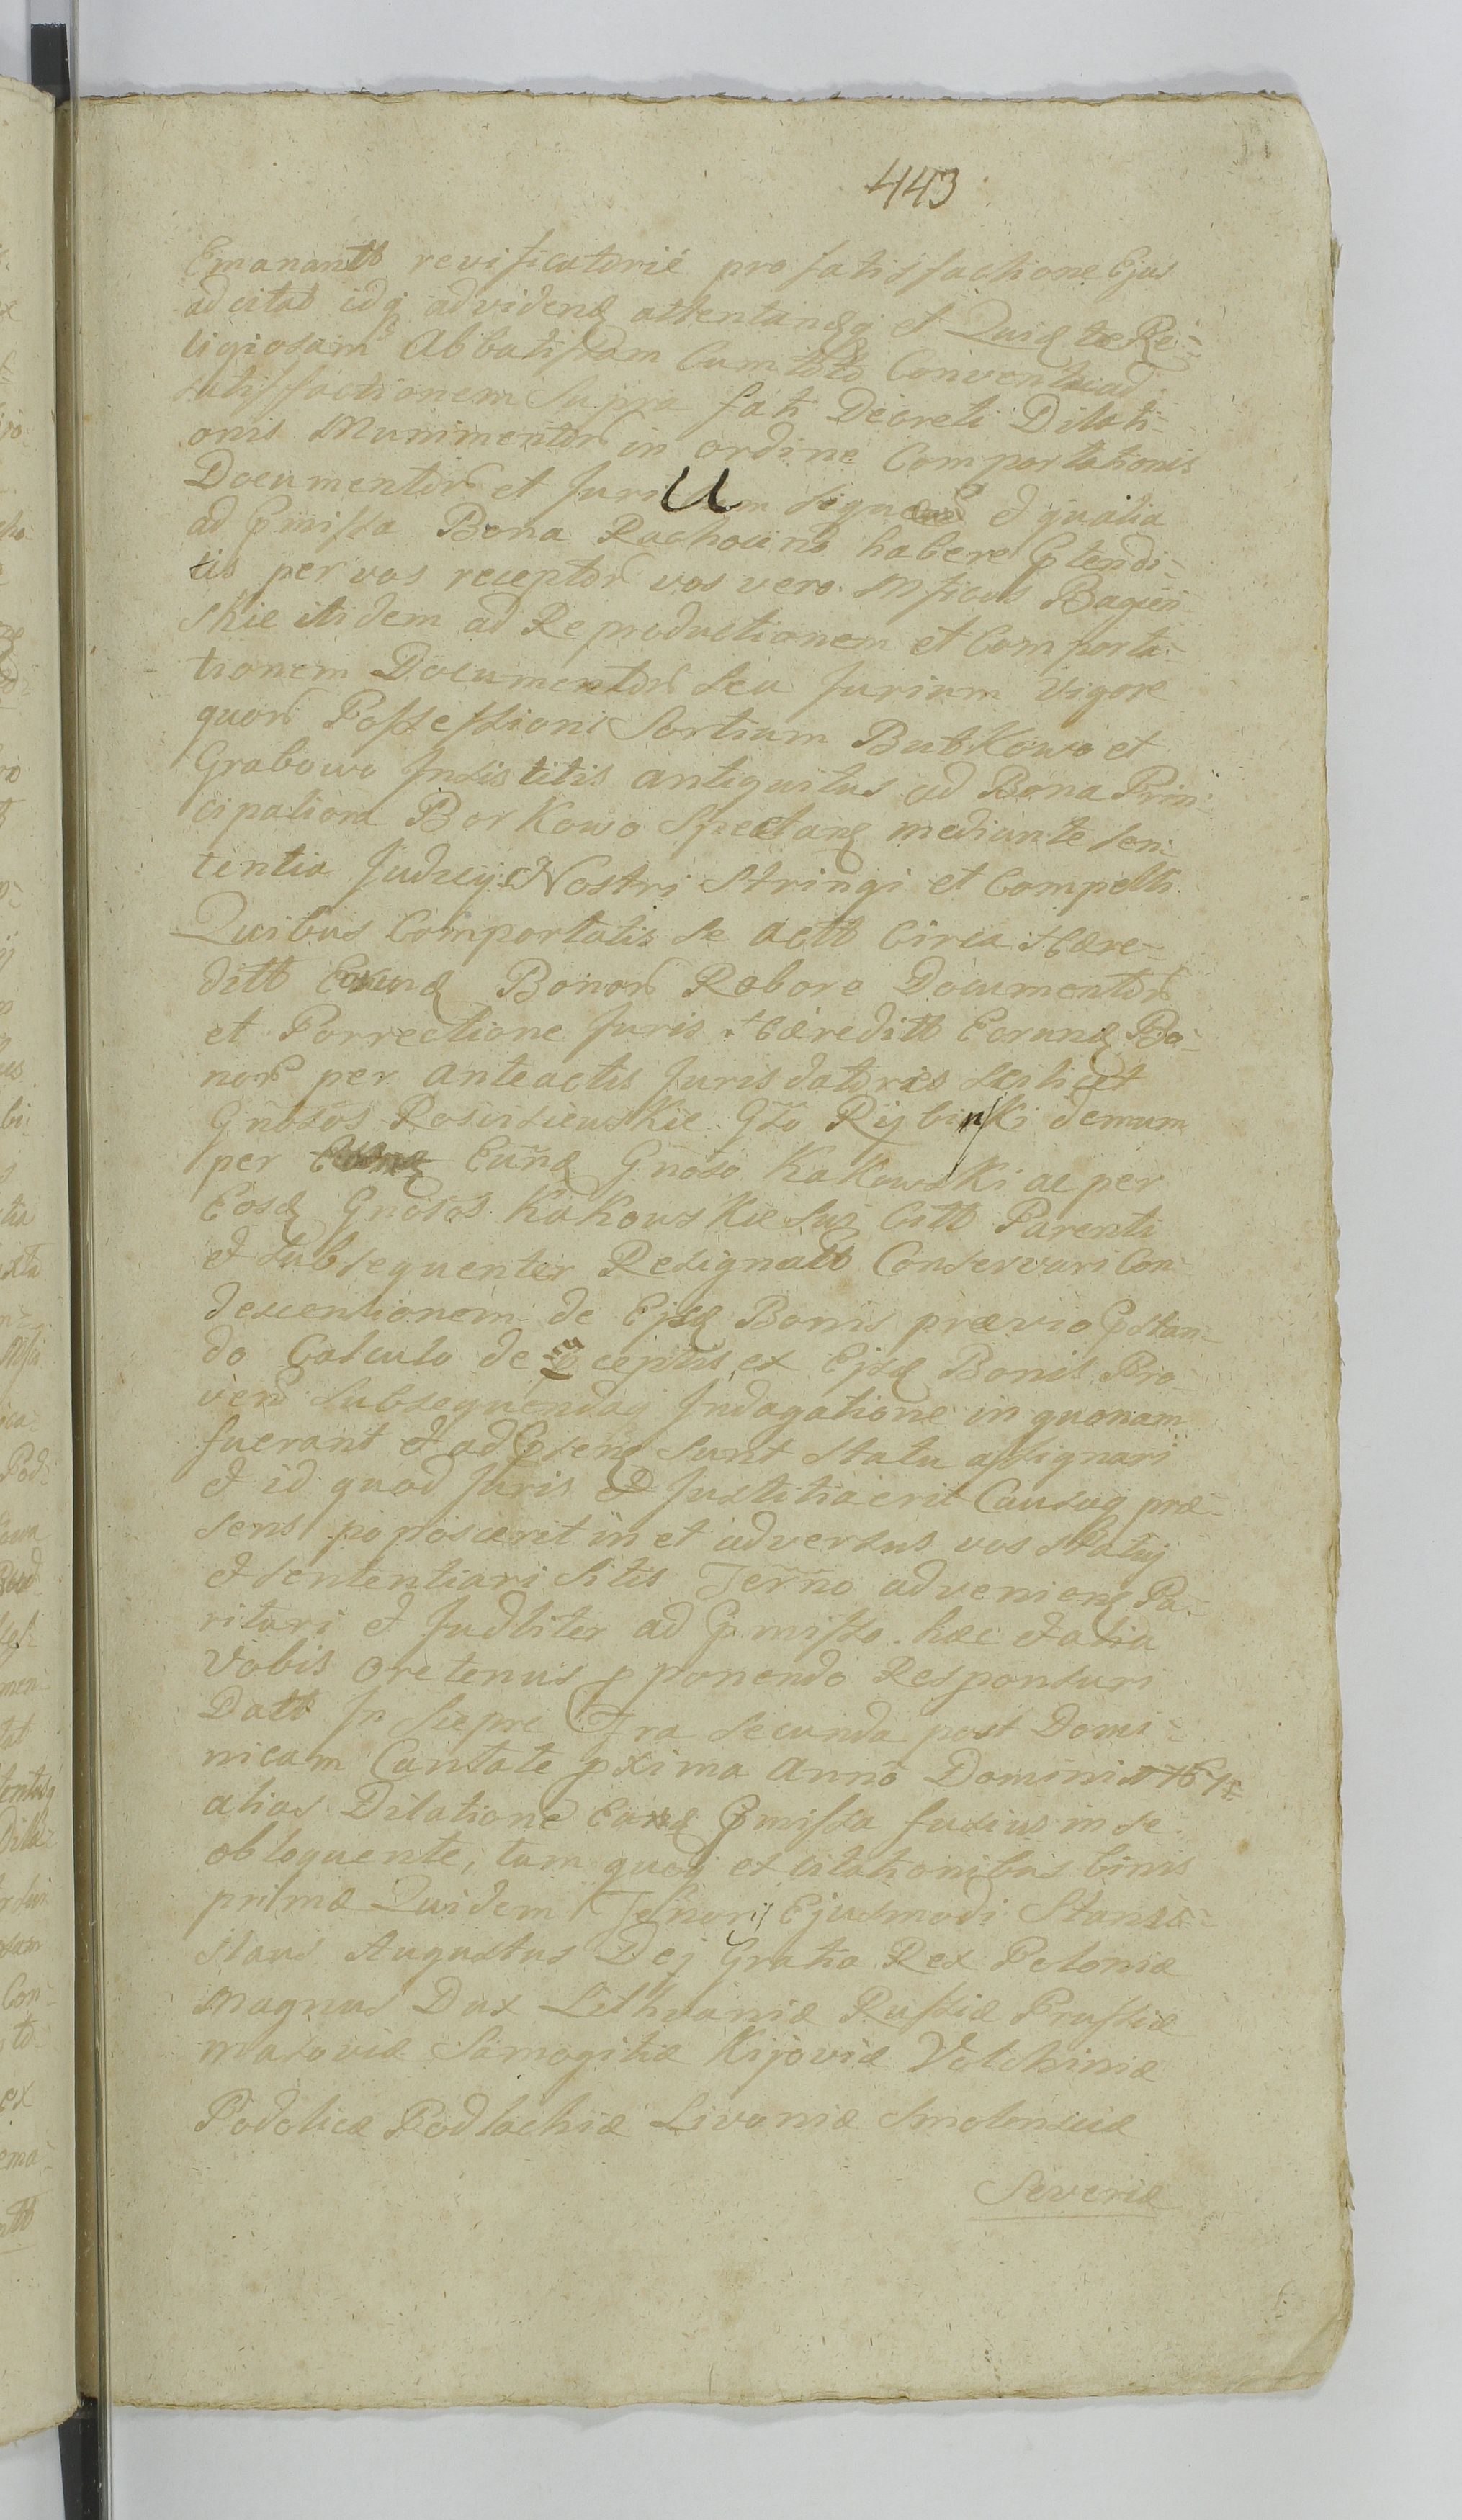 443
Emanantt revificatorie pro satisfactione Ejus
ad citat idq advidend attentandq et Quid te Re-
ligiosam Abbatissam Cum toto Conventu ad
satisfactionem Supra fati Decreti Dilati-
onis Munimentor in ordine Comportationis
Documentor et Juri et qualia
ad Pmissa Bona Rachocino habere Ptendi-
tis per vos receptor vos vero Mficos Bagiń
skie itidem ad Reproductionem et Comporta-
tionem Documentor Seu Jurium Vigore
quor Possessioni Sortium Butkowo et
Grabowo Insistitis antiquitus ad Bona Prin-
cipaliora Borkowo Spectand mediante Sen-
tentia Judicij Nostri Stringi et Compelli
Quibus Comportatis Se actt Circa Hære-
ditt Eorund Bonor Robore Documentor
et Porrectione Juris Hæreditt Eorund Bo-
nor per anteactis Juris datores Scilicet
Gnosos Rościszewskie Gso Rybiński demum
per Eund Gnoso Kakowski ac per
Eosd Gnosos Kakowskie Sui Citt Parenti
et Subsequenter Resignatt Conservari Con-
descensionem de Ejsd Bonis prævio Pstan-
do Calculo de ceptis ex Ejsd Bonis Pro-
ven Subsequendaq Indagatione in quonam
fuerant et ad Psens Sunt Statu assignari
et id quod Juris et Justitia erit Causaq præ-
sens poposcerit in et adversus vos Statuj
et Sententiari Sitis Terno adveniend Pa-
rituri et Judliter ad Pmissa hæc et alia
Vobis oretenus pponendo Responsuri
Datt In Siepre Fra Secunda post Domi-
nicam Cantate pxima Anno Domini
alias Dilatione Pmissa fusius in Se
obloquente, tum quoq ex citationibus binis
prima Quidem Tenoris Ejusmodi Stanis-
slaus Augustus Dej Gratia Rex Poloniæ
Magnus Dux Lithvaniæ Russiæ Prussiæ
Masoviæ Samogitiæ Kijoviæ Volchiniæ
Podoliæ Podlachiæ Livoniæ Smolensciæ
Severiæ